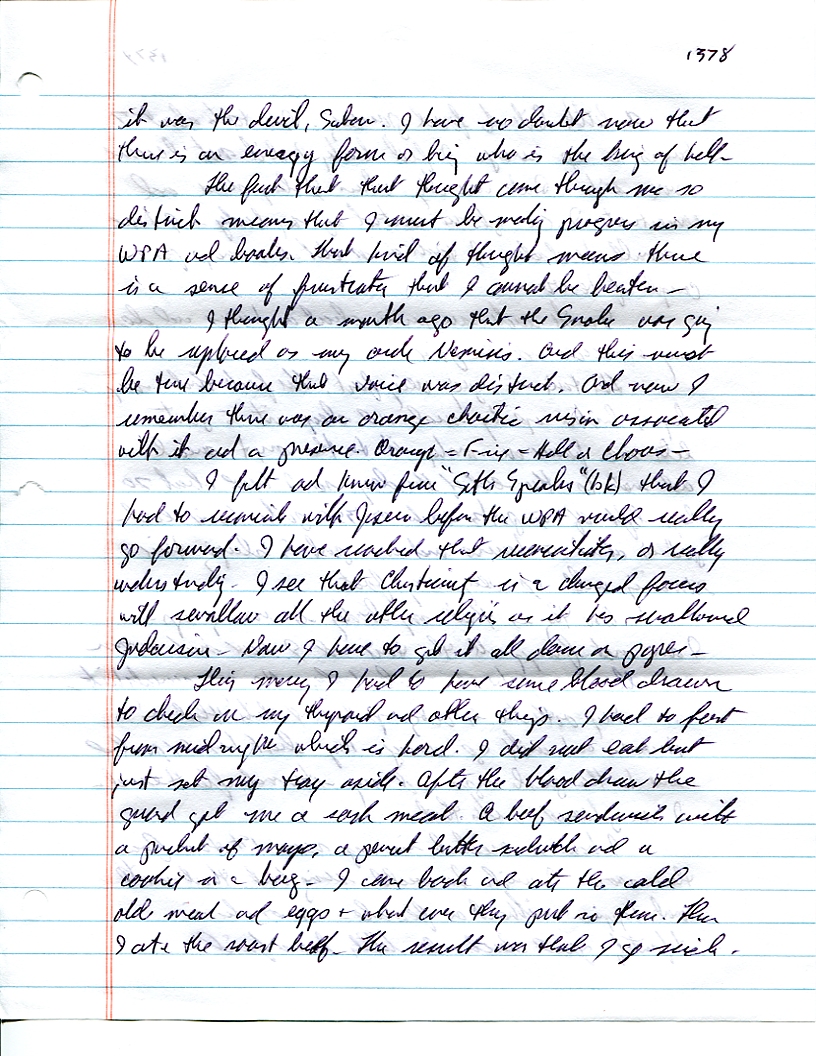 1378
it was the devil, Satan. I have no doubt now that
there is an energy form or being who is the king of hell-
The fact that that thought came through me so
distinct means that I must be making progress in my
WPA and books. That kind of thought means there
is a sense of frustration that I cannot be beaten-
I thought a month ago that the Snake was going
to be replaced as my Nemesis. And this must
be true because that voice was distinct. And now I
remember there was an orange chaotic associated
with it and a presence. Orange = Fire = Hell or Chaos-
I felt and know from "Seth Speaks" (bk) that I
had to with before the WPA would really
go forward. I have reached that or really
understanding. I see that Christianity is a changed
will swallow all the other religions as it has swallowed
Judaism- Now I have to get it all down on paper-
This morning I had to have some blood drawn
to check on my thyroid and other things. I had to fast
from midnight which is hard. I did not eat but
just set my tray aside. After the blood draw the
guard got me a sack meal. A beef sandwich with
a packet of mayo, a peanut butter sandwich and a
cookie in a bag- I came back and ate the cold
old meat and eggs + what ever they put in them. Then
I ate the roast beef- The result was that I got sick.